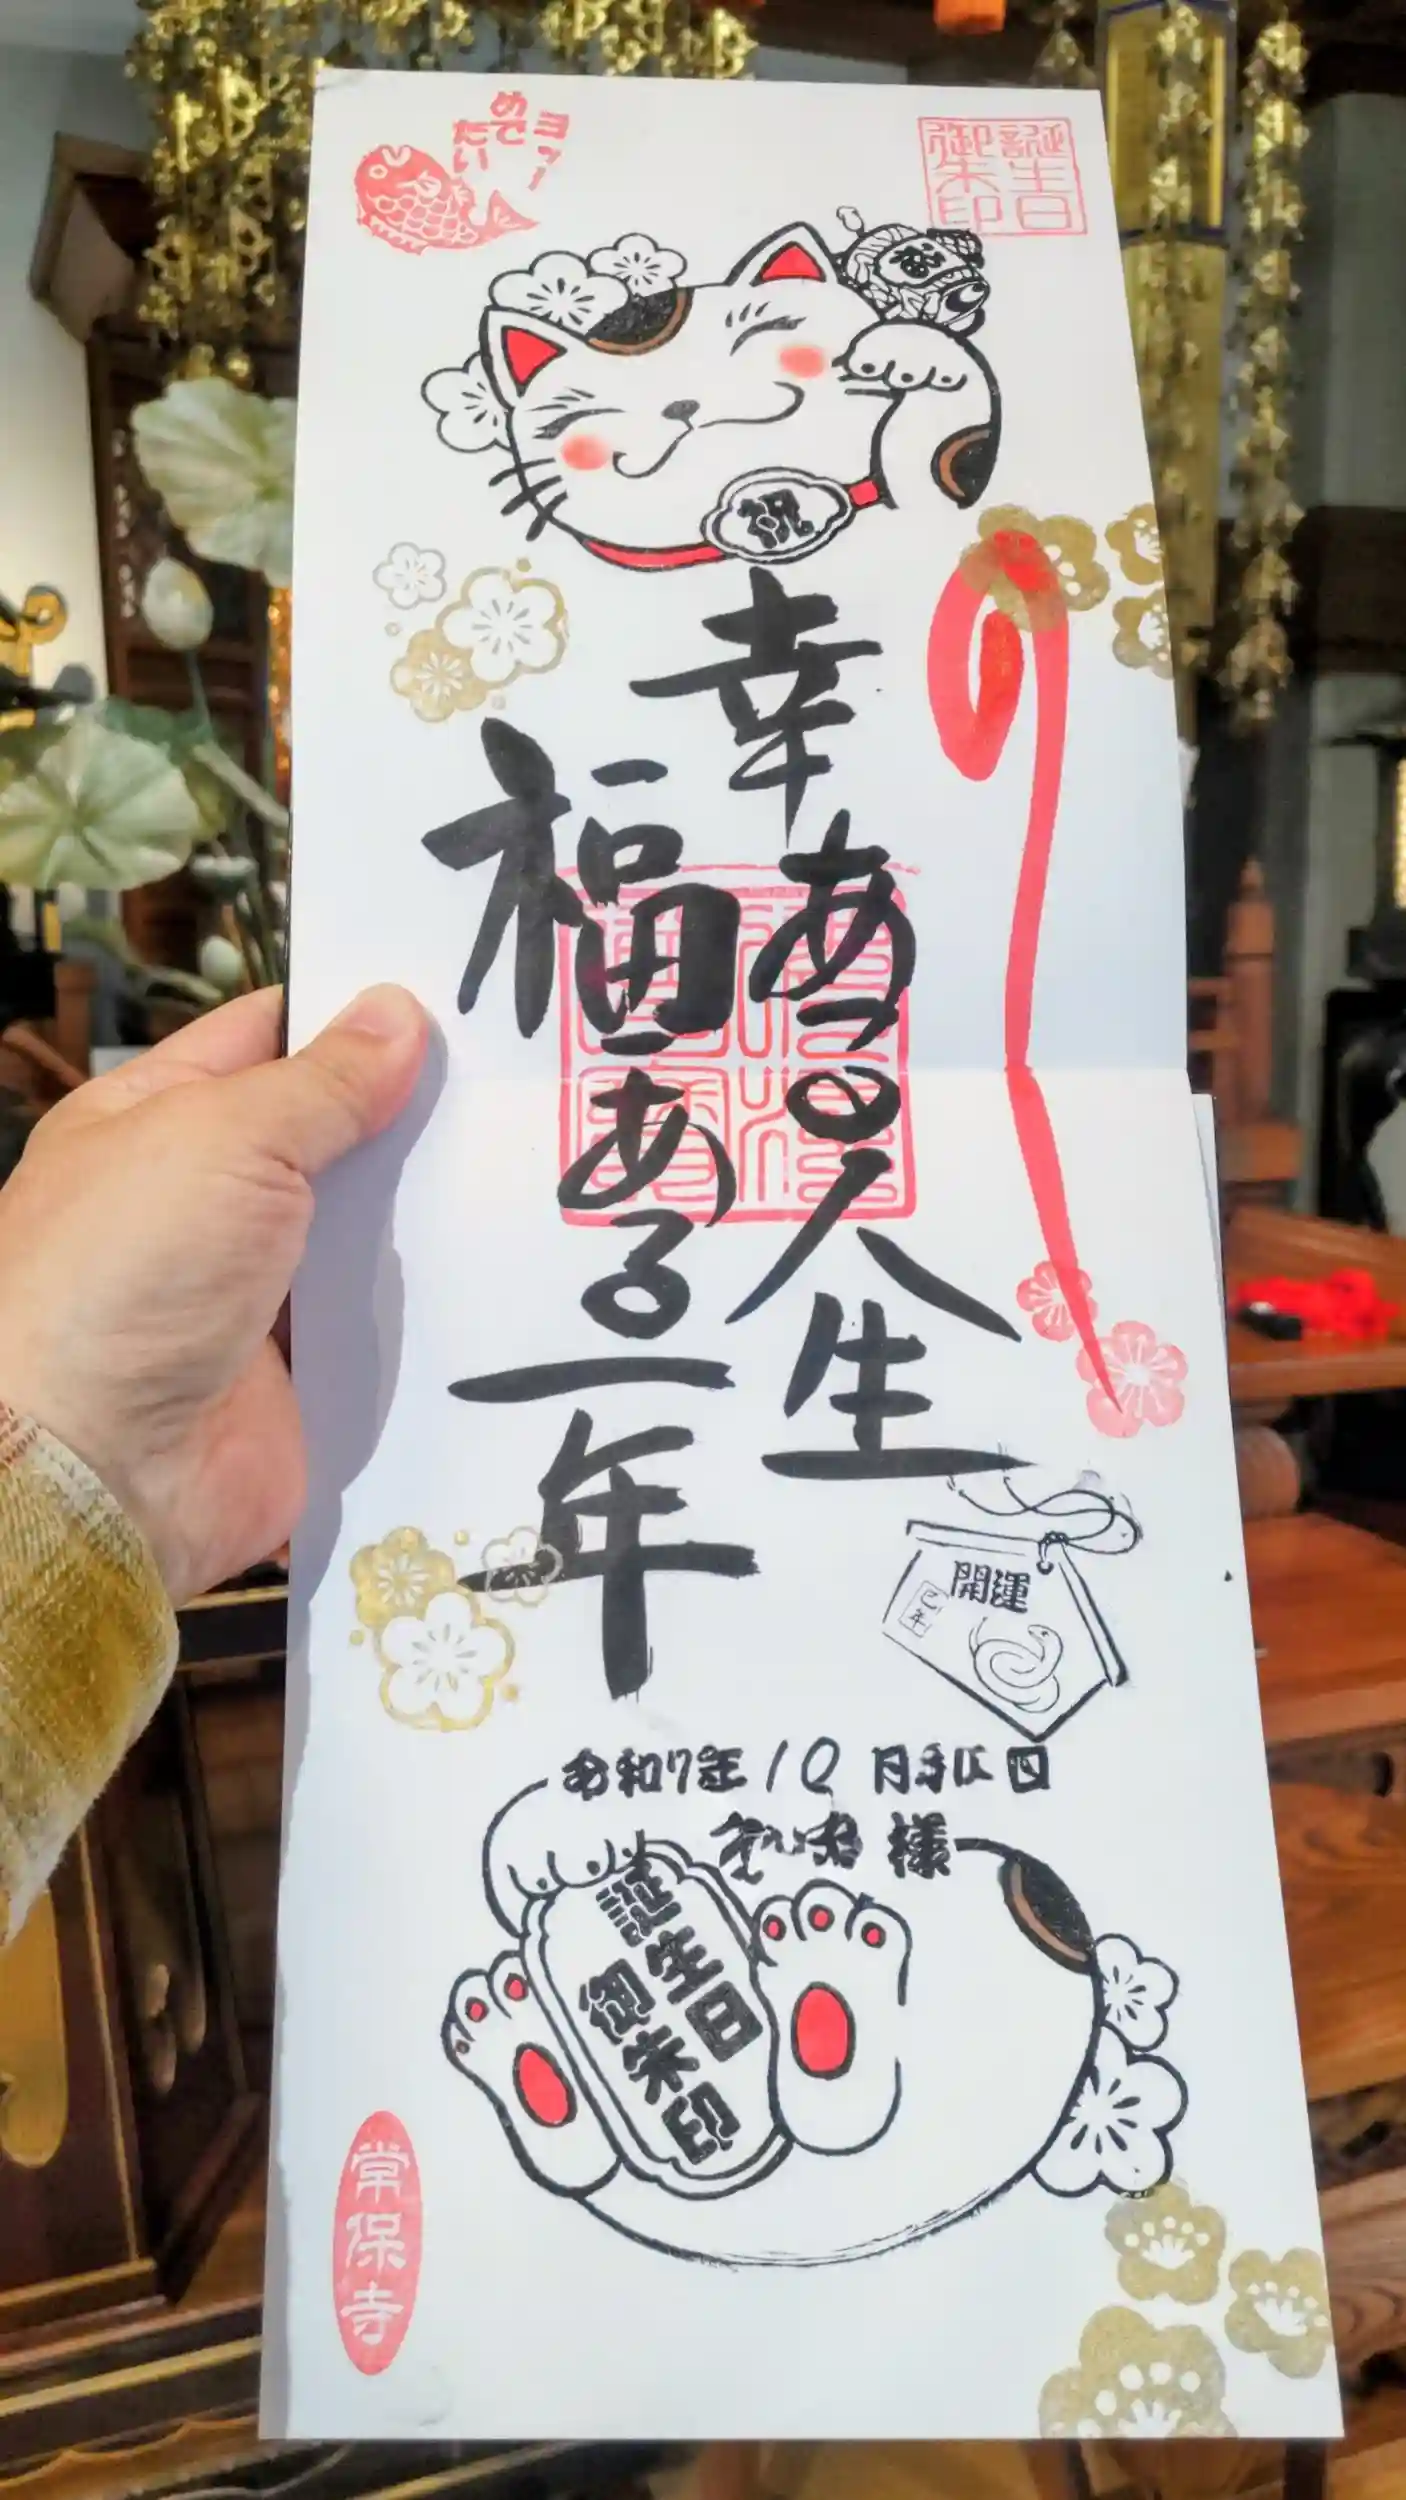 誕生日
御朱印
ヨッー
めで
たい
福
祝
幸ある人生
福ある一年
開運
巳年
令和7年10月
様
誕生日
御朱印
常保寺